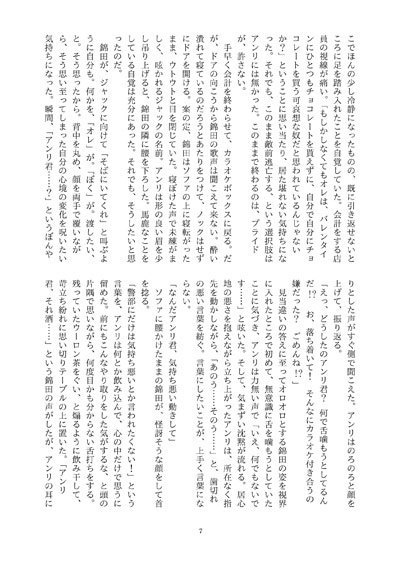 こでほんの少し冷静になったものの、既に引き返せないと
ころに足を踏み入れたことを自覚していた。会計をする店
員の視線が痛い。「もしかしなくてもオレは、バレンタイ
ンにひとつもチョコレートを貰えずに、自分で自分にチョ
コレートを買う可哀想な奴だと思われているんじゃない
か？」ということに思い当たり、居た堪れない気持ちにな
った。それでも、このまま敵前逃亡する、という選択肢は
アンリには無かった。このままで終わるのは、プライド
が、許さない。
手早く会計を終わらせて、カラオケボックスに戻る。だ
が、ドアの向こうから錦田の歌声は聞こえて来ない。酔い
潰れて寝ているのだろうとあたりをつけて、ノックはせず
にドアを開ける。案の定、錦田はソファの上に寝転がった
まま、ウトウトと目を閉じていた。寝ぼけた声で未練がま
しく、呟かれるジャックの名前。アンリは形の良い眉を少
し吊り上げると、錦田の隣に腰を下ろした。馬鹿なことを
している自覚は充分にあった。それでも、そうしたいと思
ったのだ。
錦田が、ジャックに向けて「そばにいてくれ」と叫ぶよ
うに自分も、何かを、「オレ」が、「ぼく」が。渡したい、
そう思ったから。背中を丸め、顔を両手で覆いなが
ら、そう思い至ってしまった自分の心境の変化を呪いたい
気持ちになった。瞬間、「アンリ君……？」というぼんや
りとした声がすぐ側で聞こえた。アンリはのろのろと顔を
上げて、振り返る。
「えっ、どうしたのアンリ君？ 何で舌噛もうとしてるん
だ!? お、落ち着いて！ そんなにカラオケ付き合うの
嫌だった？ ごめんね!?」
見当違いの答えに至ってオロオロとする錦田の姿を視界
に入れたところで初めて、無意識に舌を噛もうとしていた
ことに気づき、アンリは力無い声で「いえ、何でもないで
す……」と呟いた。そして、気まずい沈黙が流れる。居心
地の悪さを抱えながら立ち上がったアンリは、所在なく指
先を動かしながら、「あのう……そのう……」と、歯切れ
の悪い言葉を紡ぐ。言葉にしたいことが、上手く言葉にな
らない。
「なんだアンリ君、気持ち悪い動きして」
ソファに腰かけたままの錦田が、怪訝そうな顔をして首
を捻る。
「警部にだけは気持ち悪いとか言われたくない！」という
言葉を、アンリは何とか飲み込んで、心の中だけで思うに
留めた。前にもこんなやり取りをした気がするな、と頭の
片隅で思いながら、何度目かも分からない舌打ちをする。
残っていたウーロン茶をぐいと、煽るように飲み干して、
苛立ち紛れに思い切りテーブルの上に置いた。「アンリ
君、それ酒……」という錦田の声がしたが、アンリの耳に
7